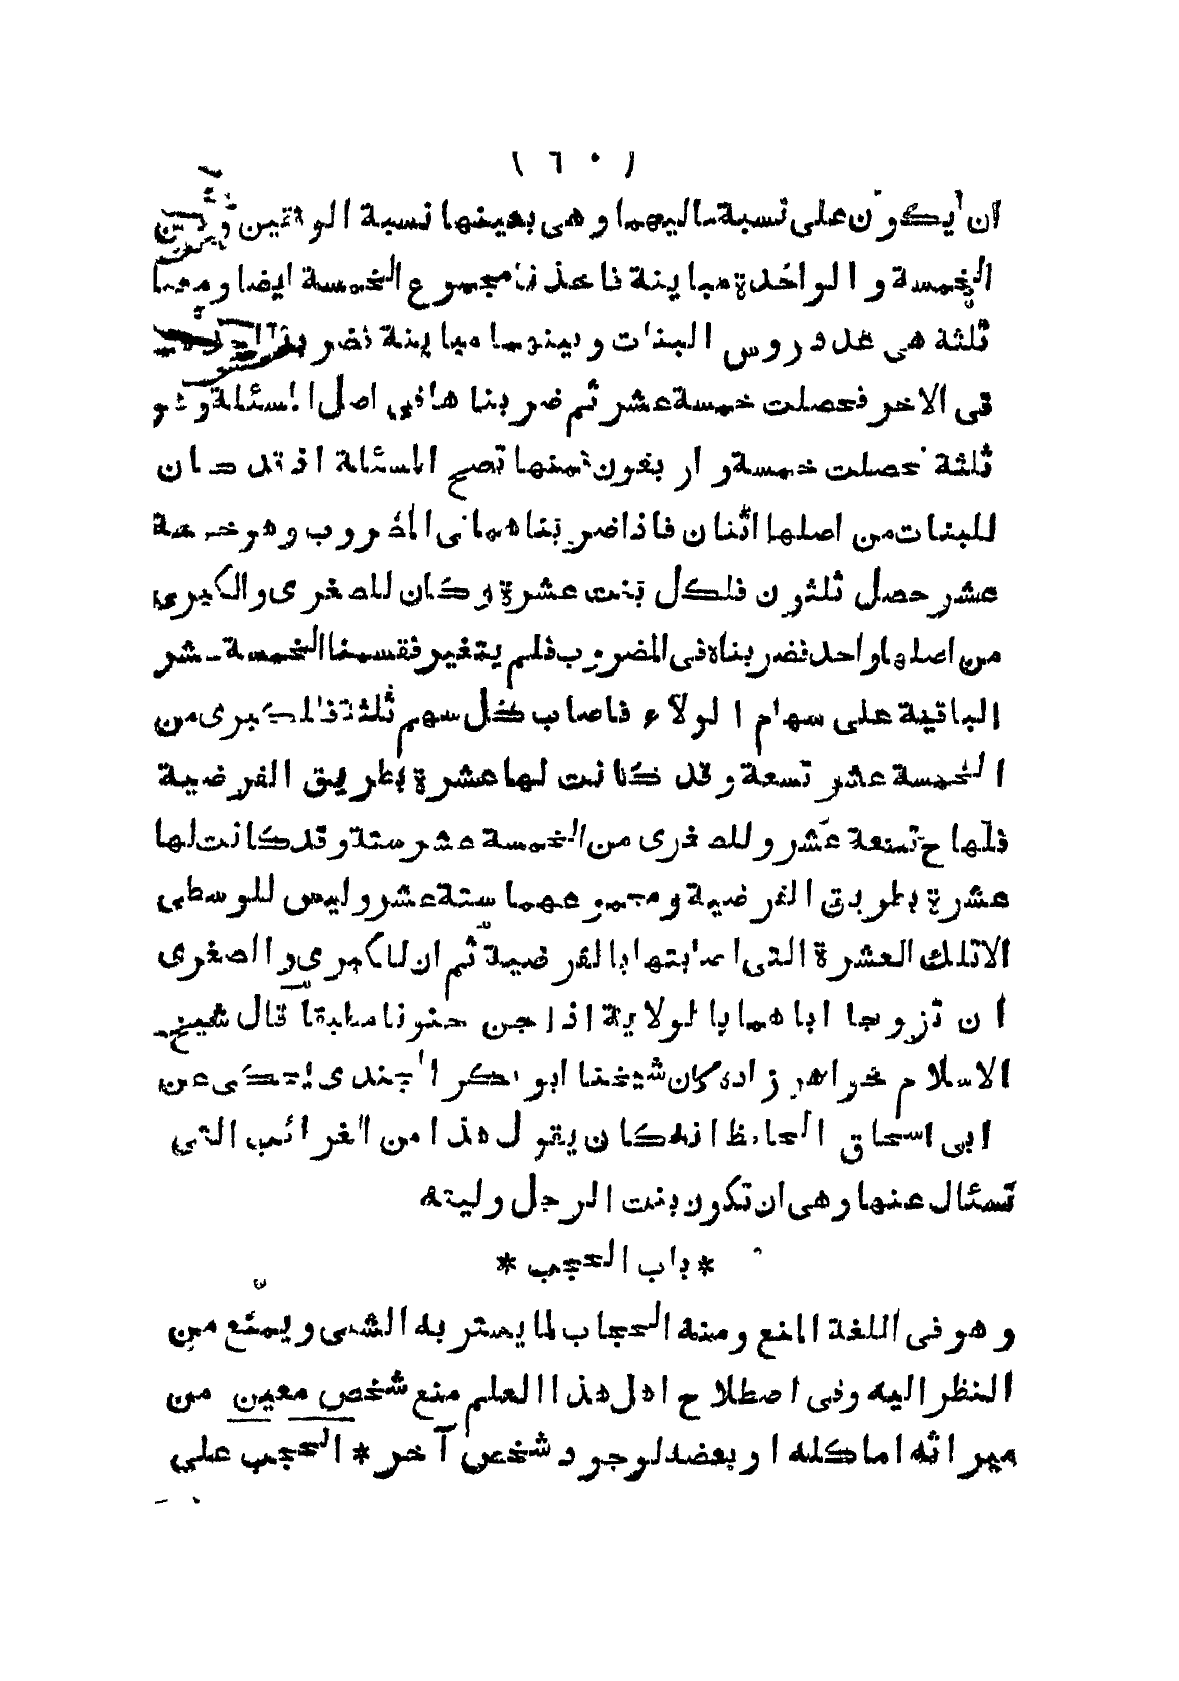 ( ٦٠ )
ان يكون على نسبة ماليهما وهى بعينها نسبة الوفقين وبين
الخمسة و الواحد مباينة فاخذنا مجموع الخمسة ايضا ومعنا
ثلثة هى عدد رؤس البنات وبينهما مباينة فضربنا احدهما
فى الاخر فحصلت خمسة عشر ثم ضربناها فى اصل المسئلة وهو
ثلثة فحصلت خمسة و اربعون فمنها تصح المسئلة اذ قد كان
للبنات من اصلها اثنان فاذا ضربناهما فى المضروب وهو خمسة
عشر حصل ثلثون فلكل بنت عشرة وكان للصغرى والكبرى
من اصلها واحد فضربناه فى المضروب فلم يتغير فقسمنا الخمسة عشر
الباقية على سهام الولاء فاصاب كل سهم ثلثة فللكبرى من
الخمسة عشر تسعة وقد كانت لها عشرة بطريق الفرضية
فلها ح تسعة عشر وللصغرى من الخمسة عشر ستة وقد كانت لها
عشرة بطريق الفرضية ومجموعهما ستة عشر وليس للوسطى
الا تلك العشرة التى اصابتها بالفرضية ثم ان للكبرى و الصغرى
ان تزوجا اباهما بالولاية اذا جن جنونا مطبقا قال شيخ
الاسلام خواهر زاده كان شيخنا ابو بكر الجندى يحكى عن
ابى اسحاق الحافظ انه كان يقول هذا من الغرائب التى
تسئال عنها وهى ان تكون بنت الرجل وليته
* باب الحجب *
وهو فى اللغة المنع ومنه الحجاب لما يستر به الشى ويمنع من
النظر اليه وفى اصطلاح اهل هذا العلم منع شخص معين من
ميراثه اما كله او بعضه لوجود شخص آخر * الحجب على